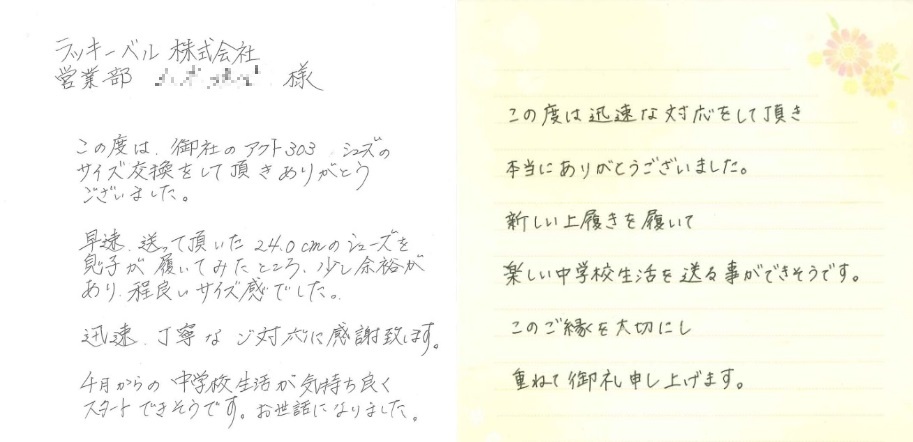 ラッキーベル 株式会社
営業部 様
この度は、御社のアクト303 シューズの
サイズ交換をして頂きありがとう
ございました。
早速、送って頂いた24.0cmのシューズを
息子が履いてみたところ、少し余裕が
あり、程良いサイズ感でした。
迅速、丁寧なご対応に感謝致します。
4月からの中学校生活が気持ち良く
スタートできそうです。お世話になりました。
この度は迅速な対応をして頂き
本当にありがとうございました。
新しい上履きを履いて
楽しい中学校生活を送る事ができそうです。
このご縁を大切にし
重ねて御礼申し上げます。